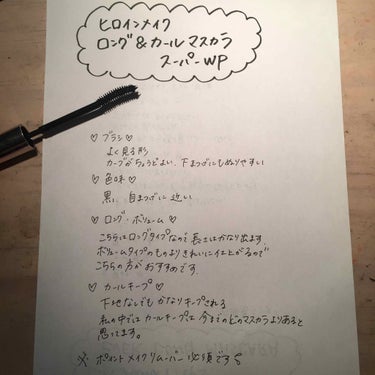 ヒロインメイク
ロング&カールマスカラ
スーパーWP
♡ ブラシ ♡
よく見る形
カーブがちょうどよい、下まつげにもぬりやすい
♡ 色味 ♡
黒、自まつげに近い
♡ ロング・ボリューム ♡
こちらはロングタイプなので長さはかなり出ます
ボリュームタイプのものよりきれいに仕上がるので
こちらの方がおすすめです。
♡ カールキープ ♡
下地なしでもかなりキープされる
私の中ではカールキープは今までのどのマスカラよりあると
思ってます。
※ ポイントメイクリムーバー必須です